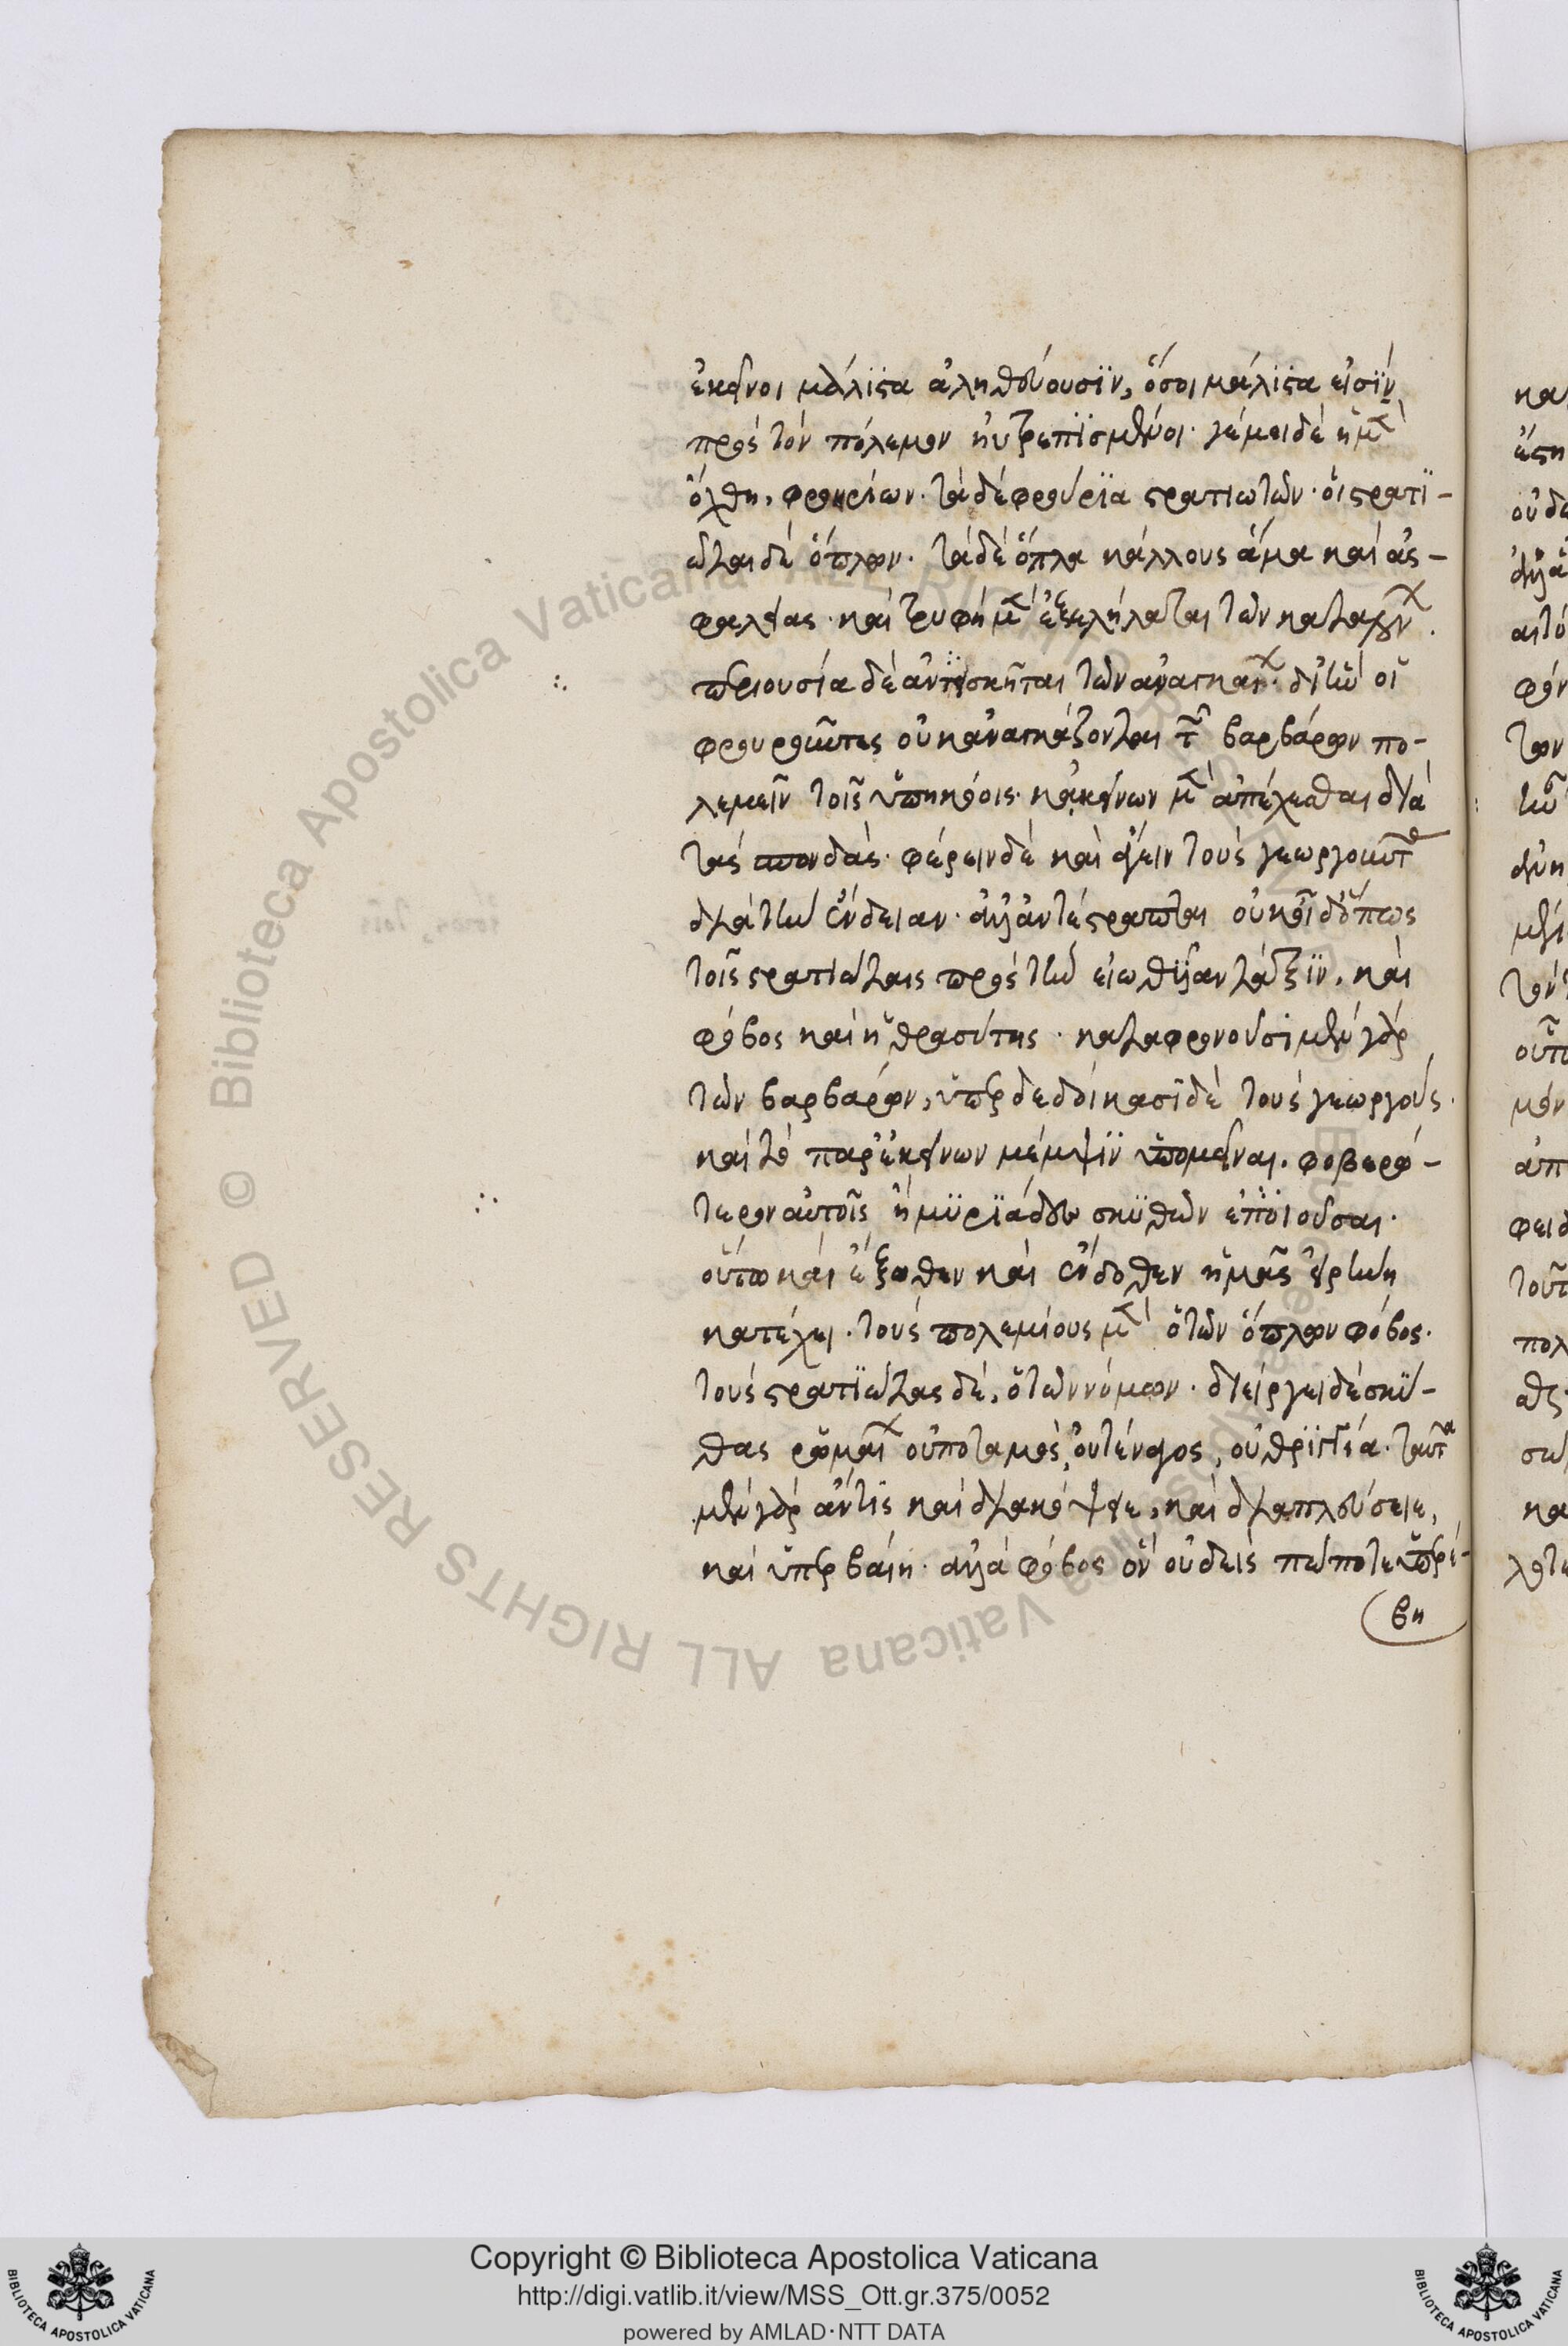 ἐκεῖνοι μάλιστα ἀληθεύουσϊν, ὅσοι μάλιστα εἰσϊν
πρὸς τὸν πόλεμον ηὐτρεπϊσμένοι· γέμει δὲ ἡ μὲν
ὄχθη, φρουρίων· τὰ δὲ φρούρϊα στρατιωτῶν· οἱ στρατϊ-
ῶται δὲ ὅπλων· τὰ δὲ ὅπλα κάλλους ἅμα καὶ ἀσ-
φαλείας· καὶ τρυφὴ μὲν ἐξελήλαται τῶν καταλόγων·
περιουσία δὲ ἀντϊσκῆται τῶν ἀναγκαίων· δι' ὧν οἱ
φρουροῦντες οὐκ ἀναγκάζονται ἀντὶ βαρβάρων πο-
λεμεῖν τοῖς ὑπηκόοις· κἀκείνων μὲν ἀπέχεσθαι διὰ
τὰς σπονδάς· φέρειν δὲ καὶ ἄγειν τοὺς γεωργοῦντας
διὰ τὴν ἔνδειαν· ἀλλ' ἀντέστραπται οὐκ οἶδ' ὅπως
τοῖς στρατιώταις πρὸς τὴν εἰωθυῖαν τάξϊν, καὶ
φόβος καὶ ἡ θρασύτης· καταφρονοῦσι μὲν γὰρ
τῶν βαρβάρων, ὑπερδεδοίκασι δὲ τοὺς γεωργούς·
καὶ τὸ παρ' ἐκείνων μέμψϊν ὑπομεῖναι, φοβερώ-
τερον αὐτοῖς ἢ μϋρϊάδες σκϋθῶν ἐπϊοῦσαι·
οὕτω καὶ ἔξωθεν καὶ ἔνδοθεν ἡμᾶς εἰρήνη
κατέχει· τοὺς πολεμίους μὲν ὁ τῶν ὅπλων φόβος·
τοὺς στρατϊώτας δὲ, ὁ τῶν νόμων· διείργει δὲ σκϋ-
θας ῥωμαίων οὐ ποταμὸς, οὐ τέναγος, οὐ θρϊγγία· ταῦτα
μὲν γὰρ ἄν τϊς καὶ διακόψειε, καὶ διαπλεύσειε,
καὶ ὑπερβαίη· ἀλλὰ φόβος ὃν οὐδεὶς πώποτε ὑπερέ-
βη
Copyright © Biblioteca Apostolica Vaticana
http://digi.vatlib.it/view/MSS_Ott.gr.375/0052
powered by AMLAD·NTT DATA